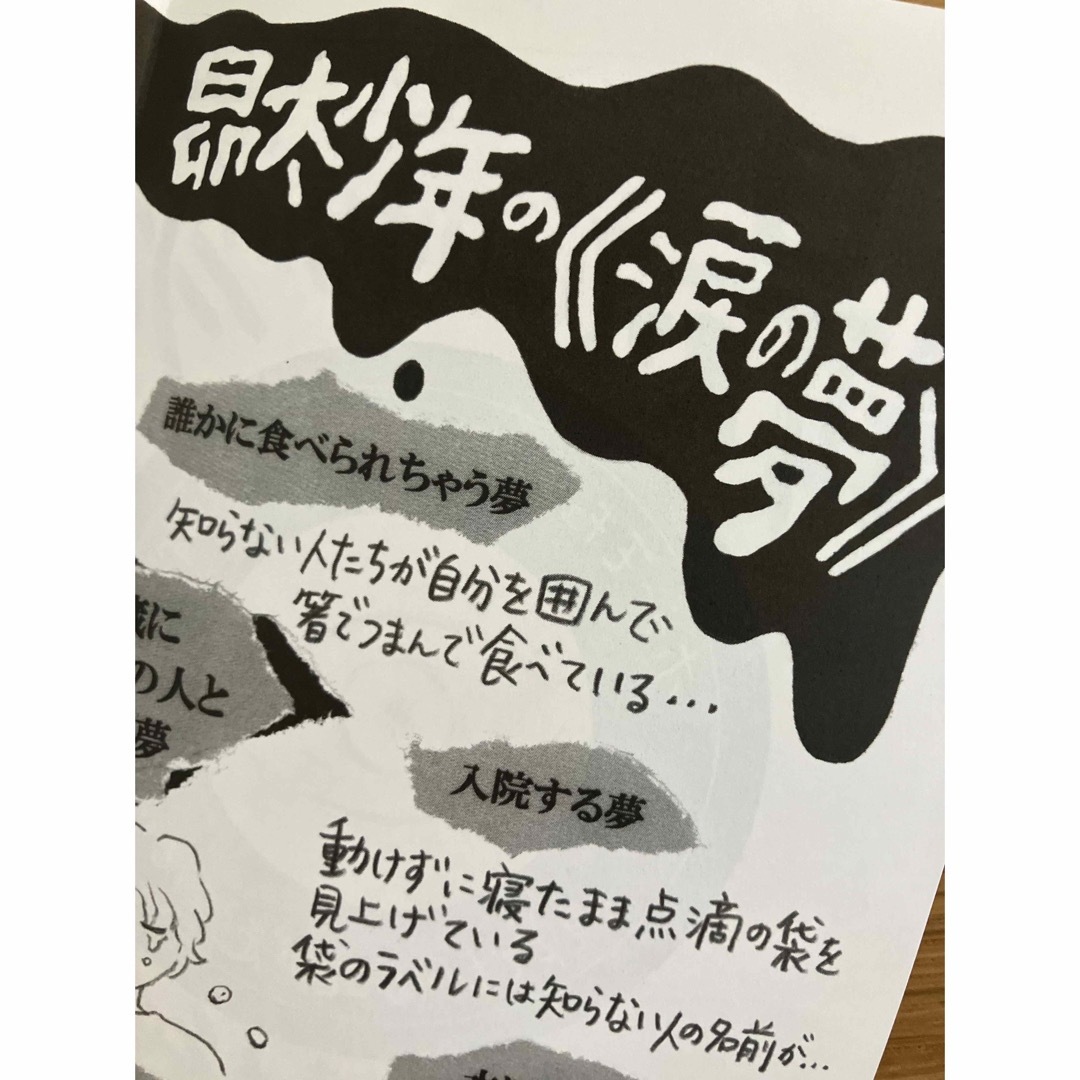 昴太少年の《涙の夢》
誰かに食べられちゃう夢
知らない人たちが自分を囲んで
箸でつまんで食べている…
に
の人と
夢
入院する夢
動けずに寝たまま点滴の袋を
見上げている
袋のラベルには知らない人の名前が…